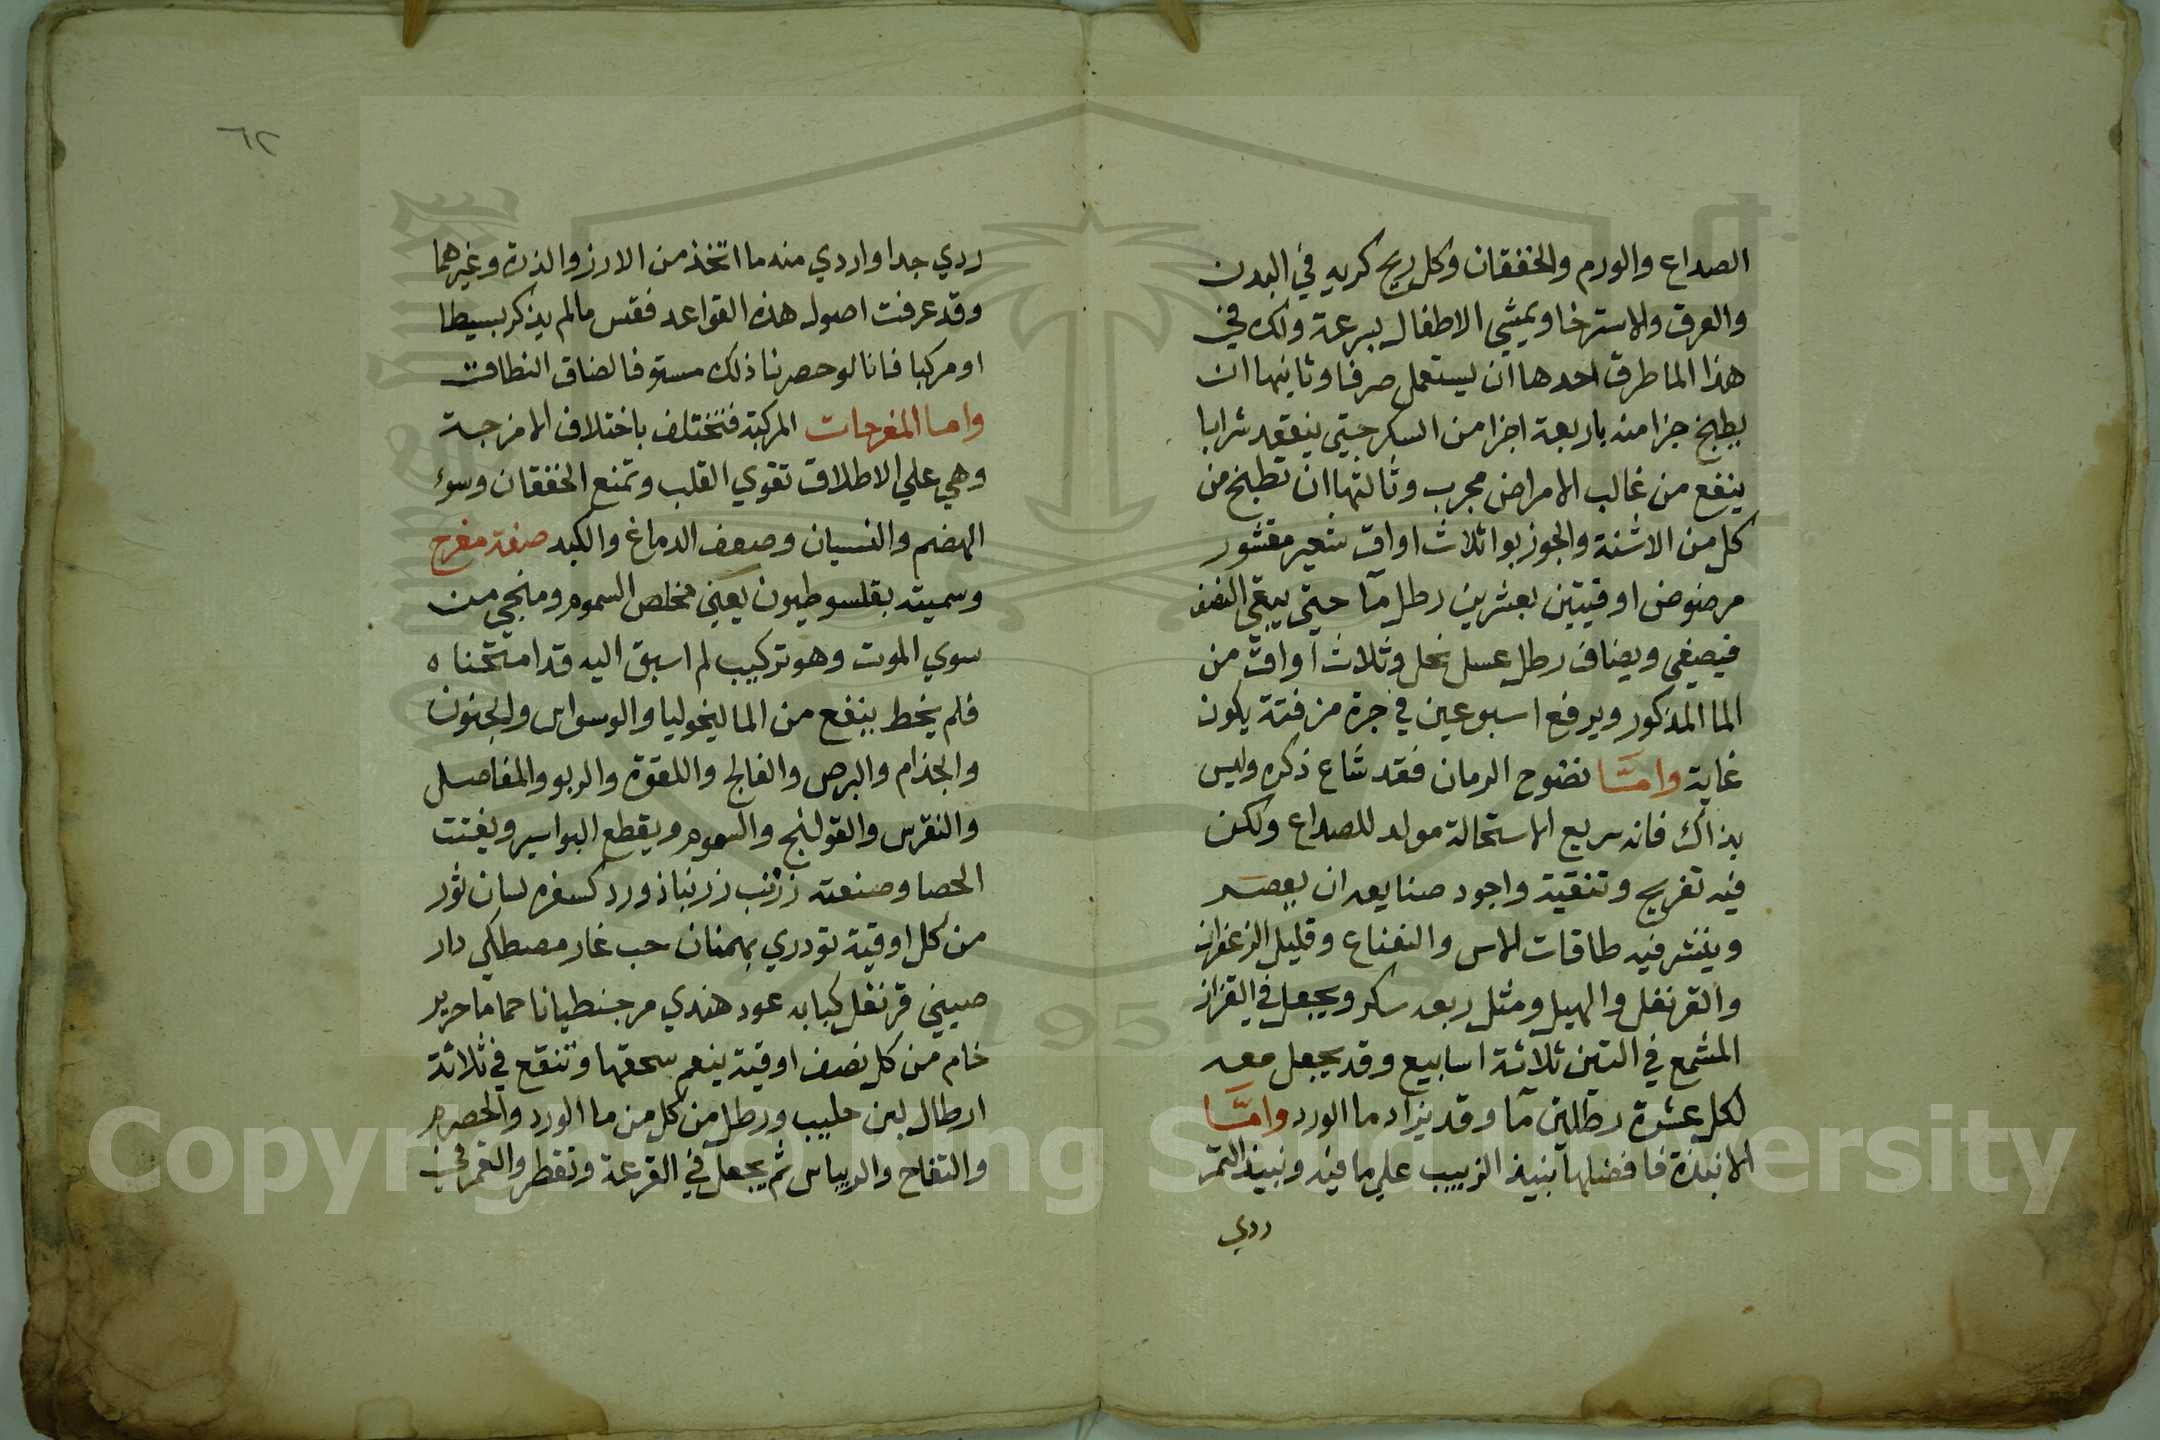 الصداع والورم والخفقان وكل ريح كريه في البدن
والعرق والاسترخا ويمشي الاطفال بسرعة ولك في
هذا الما طرق احدها ان يستعمل صرفا وثانيها ان
يطبخ جزا منه باربعة اجزا من السكر حتي ينعقد شرابا
ينفع من غالب الامراض مجرب وثالثها ان تطبخ من
كل من الاشنة والجوزبوا ثلاث اواق شعير مقشور
مرضوض اوقيتين بعشرين رطل مآ حتي يبقي النصف
فيصفي ويضاف رطل عسل نحل وثلاث اواق من
الما المذكور ويرفع اسبوعين في جرة مزفتة يكون
غاية وامَّا نضوح الرمان فقد شاع ذكره وليس
بذاك فانه سريع الاستحالة مولد للصداع ولكن
فيه تفريح وتنقية واجود صنايعه ان يعصر
وينثر فيه طاقات الاس والنعناع وقليل الزعفران
والقرنفل والهيل ومثل ربعه سكر ويجعل في القزاز
المشمع في التبن ثلاثة اسابيع وقد يجعل معه
لكل عشرة رطلين مآ وقد يزاد ما الورد وامَّا
الانبذة فافضلها نبيذ الزبيب علي ما فيه ونبيذ التمر
ردي
٦٢
ردي جدا واردي منه ما اتخذ من الارز والذرة وغيرهما
وقد عرفت اصول هذه القواعد فقس ما لم يذكر بسيطا
او مركبا فانا لو حصرنا ذلك مستوفا لضاق النطاقت
واما المفرحات المركبة فتختلف باختلاف الامزجة
وهي علي الاطلاق تقوي القلب وتمنع الخفقان وسوء
الهضم والنسيان وضعف الدماغ والكبد صفة مفرح
وسميته بقلسوطيون يعني مخلص السموم ومنجي من
سوي الموت وهو تركيب لم اسبق اليه قد امتحناه
فلم يخط ينفع من الماليخوليا والوسواس والجنون
والجذام والبرص والفالج واللقوة والربو والمفاصل
والنقرس والقولنج والسموم ويقطع البواسير ويفتت
الحصا وصنعته زرنب زرنباذ ورد كسفره لسان ثور
من كل اوقية تودري بهمنان حب غار مصطكي دار
صيني قرنفل كبابه عود هندي مر جنطيانا حماما حرير
خام من كل نصف اوقية ينعم سحقها وتنقع في ثلاثة
ارطال لبن حليب ورطل من كل من ما الورد والحصرم
والتفاح والريباس ثم يجعل في القرعة وتقطر والقمر في
Copyright © King Saud University
1957